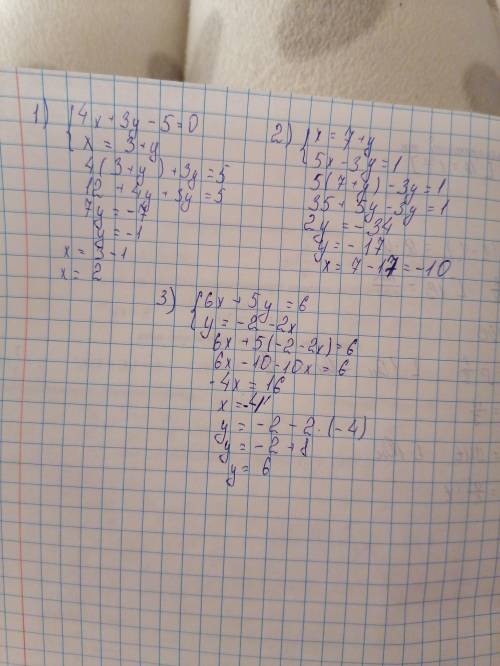 1) { 4x + 3y - 5 = 0
x = 3 + y
4(3 + y) + 3y = 5
12 + 4y + 3y = 5
7y = -7
y = -1
x = 3 - 1
x = 2
2) { x = 7 + y
5x - 3y = 1
5(7 + y) - 3y = 1
35 + 5y - 3y = 1
2y = -34
y = -17
x = 7 - 17 = -10
3) { 6x + 5y = 6
y = -2 - 2x
6x + 5(-2 - 2x) = 6
6x - 10 - 10x = 6
-4x = 16
x = -4
y = -2 - 2 · (-4)
y = -2 + 8
y = 6